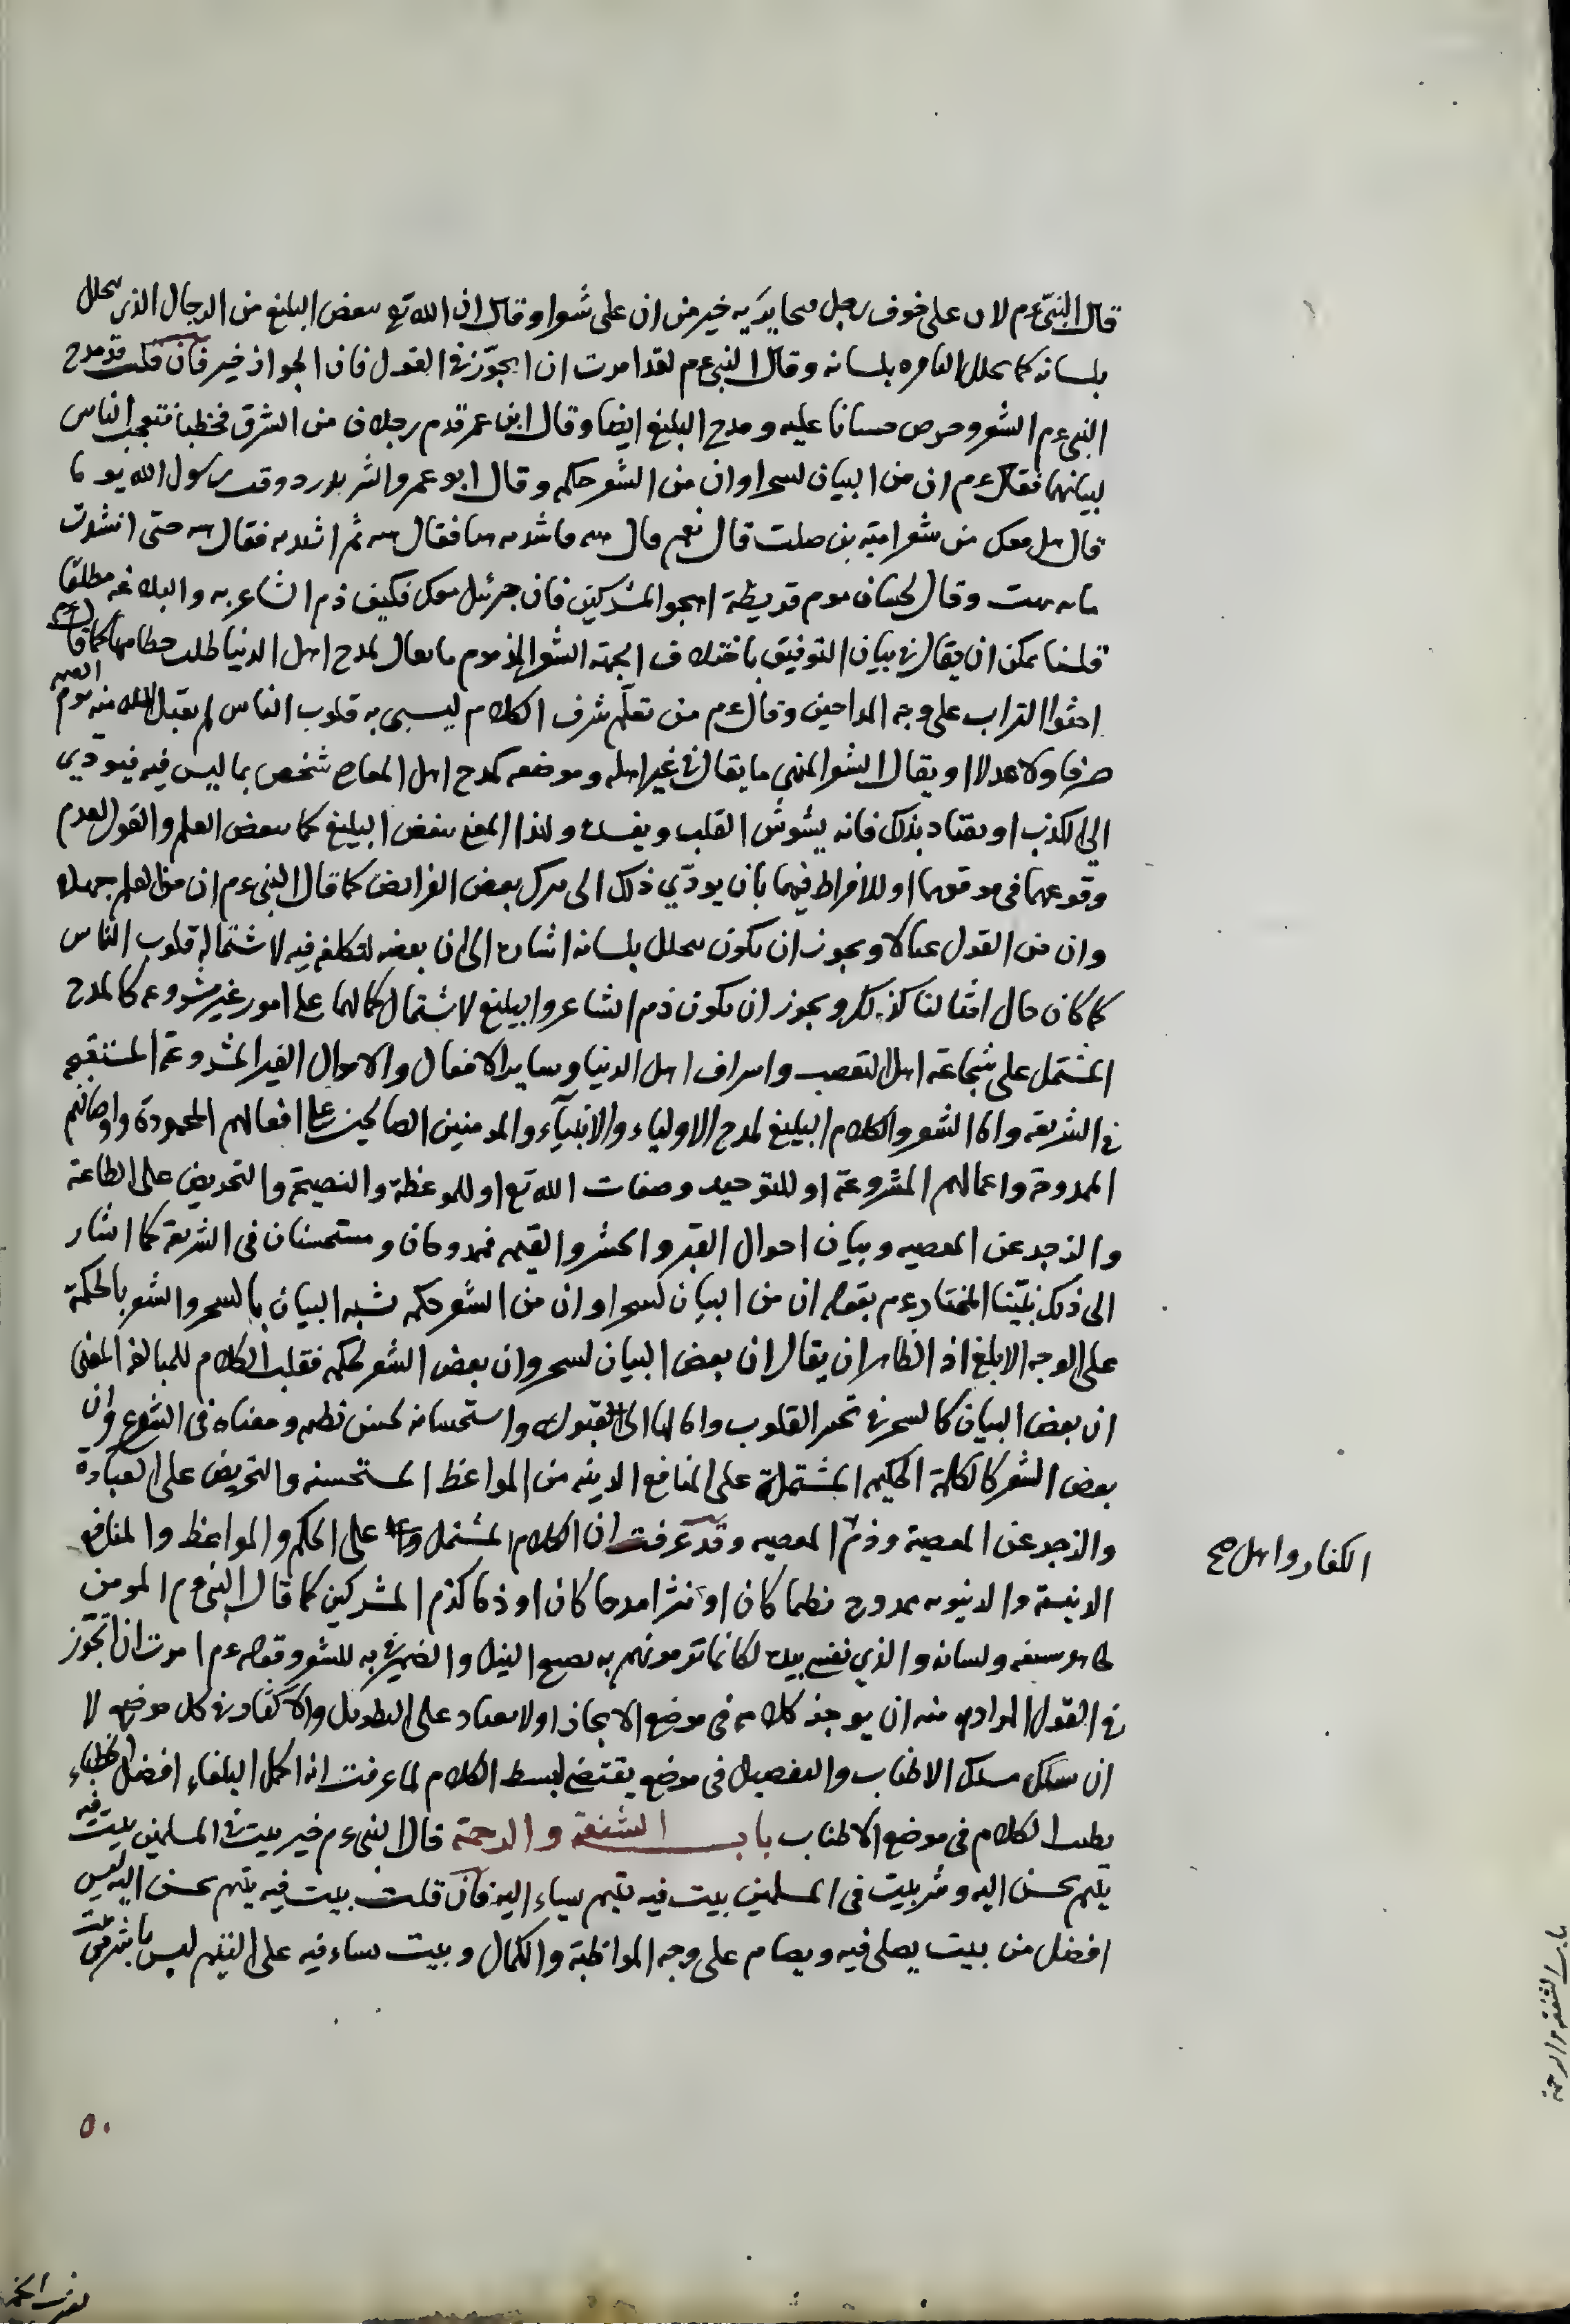 قال النبى ءم لان على خوف رجل صحا يريه خير من ان على شعرا وقال ان الله تع سعض البليغ من الرجال الذى سحلل
بلسانه كما سحلل الباقره بلسانه وقال النبى ءم لقد امرت ان اتجوّز فى القول فان الجواز خير فان قلت قد مدح
النبى ءم الشعر وحرص حسانا عليه ومدح البليغ ايضا وقال ابن عمر قدم رجلان من الشرق فخطبا فتعجب الناس
لبيانهما فقال ءم ان من البيان لسحرا وان من الشعر حكمه وقال ابو عمرو الشريد ردوقت رسول الله يوما
قال هل معك من شعر اميّة بن صلت قال نعم قال هيه فانشدته بيتا فقال هيه ثم انشدته فقال هيه حتى انشدت
مايه بيت وقال لحسان يوم قريظة اهجو المشركين فان جبرئيل معك فكيف ذم الشاعر به والبلاغه مطلقا
قلنا يمكن ان يقال فى بيان التوفيق باختلاف الجهته الشعر المذموم ما يقال لمدح اهل الدنيا طلب حطامها كما قال ءم
احثوا التراب على وجه المداحين وقال ءم من تعلّم شرف الكلام ليسبى به قلوب الناس لم يقبل الله منه يوم القيمه
صرفا ولا عدلا او يقال الشعر المنهى ما يقال فى غير اهله وموضعه كمدح اهل المعاصى شخص بما ليس فيه فيودّي
الى الكذب او يعتاد بذلك فانه يشوش القلب ويفسده ولهذا المعنى سغض البليغ كما سعض العلم والقول لعدم
وقوعهما فى موقعهما او للافراط فيهما بان يودّي ذلك الى ترك بعض الفرايض كما قال النبى ءم ان من العلم جهلا
وان من القول عيالا ويجوز ان يكون سحلل بلسانه اشاره الى ان بعضه لتكلفه فيه لاستمالة قلوب الناس
كما كان حال امثالنا كذلك ويجوز ان يكون ذم الشاعر والبليغ لاشتمال كمالهما على امور غير مشروعه كالمدح
المشتمل على شجاعة اهل التعصب واسراف اهل الدنيا وساير الافعال والاحوال الغير المشروعة المستقبحه
فى الشريعه واما الشعر والكلام البليغ لمدح الاولياء والانبيآء والمومنين الصالحين على افعالهم المحمودة واوصافهم
الممدوحة واعمالهم المشروعة او للتوحيد وصفات الله تع او للموعظة والنصيحة والتحريض على الطاعة
والزجر عن المعصيه وبيان احوال القبر والحشر والقيمه فممدوحان ومستحسنان فى الشريعه كما اشار
الى ذلك نبيّنا المختار ءم بقوله ان من البيان لسحرا وان من الشعر حكمه شبه البيان بالسحر والشعر بالحكمة
على الوجه الابلغ اذ الظاهر ان يقال ان بعض البيان لسحر وان بعض الشعر لحكمه فقلب الكلام للمبالغه المعنى
ان بعض البيان كالسحر فى تحير القلوب وامالها الى القبول واستحسانه لحسن نظمه ومعناه فى الشرع وان
بعض الشعر كالكلمة الحكيمه المشتملة على المنافع الدينه من المواعظ المستحسنه والتحريض على العبادة
والزجر عن المعصية وذم المعصيه وقد عرفت ان الكلام المشتمل على الحكم والمواعظ والمنافع
الكفار واهل صح
الدينية والدنيويه ممدوح نظما كان او نثرا مدحا كان او ذما كذم المشركين كما قال النبى ءم المومن
يجاهد بسيفه ولسانه والذي نفسى بيده لكانما ترمونهم به نضح النبل والضمير فى به للشعر وقوله ءم امرت ان اتجوّز
فى القول المراد منه ان يوجز كلامه فى موضع الايجاز او لا يعتاد على التطويل والاكثار فى كل موضع لا
ان سلك مسلك الاطناب والتفصيل فى موضع يقتضى لبسط الكلام لما عرفت انه اكمل البلغاء افضل الخطباء
بطلب الكلام فى موضع الاطناب باب الشفقة والرحمة قال النبى ءم خير بيت فى المسلمين بيت فيه
يتيم يحسن اليه وشر بيت فى المسلمين بيت فيه يتيم يساء اليه فان قلت بيت فيه يتيم يحسن اليه ليس
افضل من بيت يصلى فيه ويصام على وجه المواظبة والكمال وبيت يساء فيه على اليتيم ليس باشر من بيت
باب الشفقة والرحمة
٥٠